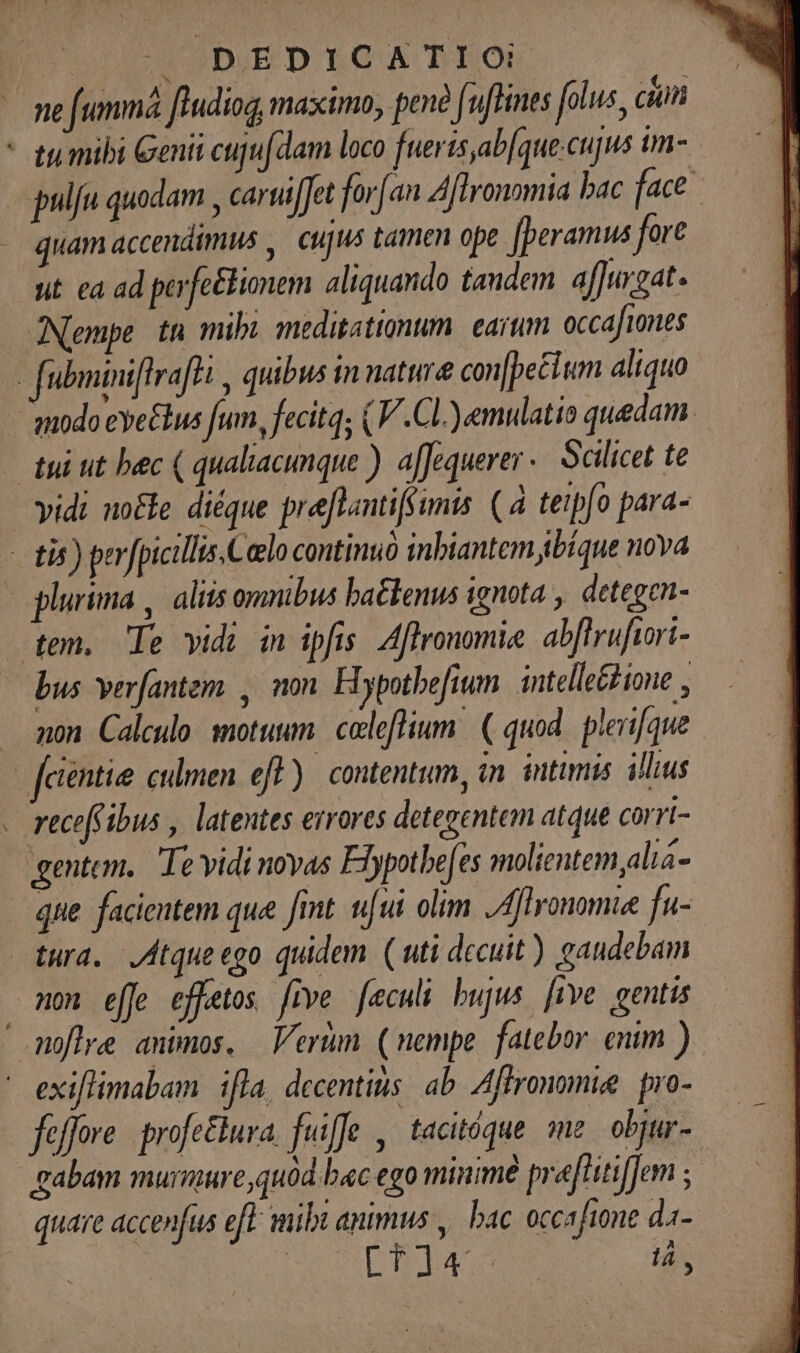 DEDICATIO:
ne ſummâ ſtudioq; maximo, penè ſuſtines ſolus, cùm
tu mihi Genii cujuſdam loco fueris, abſque cujus im-
pulſu quodam, caruiſſet forſan Aſtronomia hac face
quam accendimus, cujus tamen ope ſperamus fore
ut ea ad perfectionem aliquando tandem aſſurgat.
Nempe tu mihi meditationum earum occaſiones
ſubminiſtraſti, quibus in naturæ conſpectum aliquo
modo evectus ſum, fecitq; (V.Cl.) æmulatio quædam
tui ut hæc (qualiacunque) aſſequerer. Scilicet te
vidi nocte diéque præſtantiſſimis (à teipſo para-
tis) perſpicillis, Cœlo continuò inhiantem, ibíque nova
plurima, aliis omnibus hactenus ignota, detegen-
tem. Te vidi in ipſis Aſtronomiæ abſtruſiori-
bus verſantem, non Hypotheſium intellectione,
non Calculo motuum cœleſtium (quod pleriſque
ſcientiæ culmen eſt) contentum, in intimis illius
receſſibus, latentes errores detegentem atque corri-
gentem. Te vidi novas Hypotheſes molientem, aliá-
que facientem quæ ſint uſui olim Aſtronomiæ fu-
tura. Atque ego quidem (uti decuit) gaudebam
non eſſe effætos ſive ſæculi hujus ſive gentis
noſtræ animos. Verùm (nempe fatebor enim)
exiſtimabam iſta decentiùs ab Aſtronomiæ pro-
feſſore profectura fuiſſe, tacitóque me objur-
gabam murmure, quòd hæc ego minimè præſtitiſſem;
quare accenſus eſt mihi animus, hac occaſione da-
[†]4 tâ,